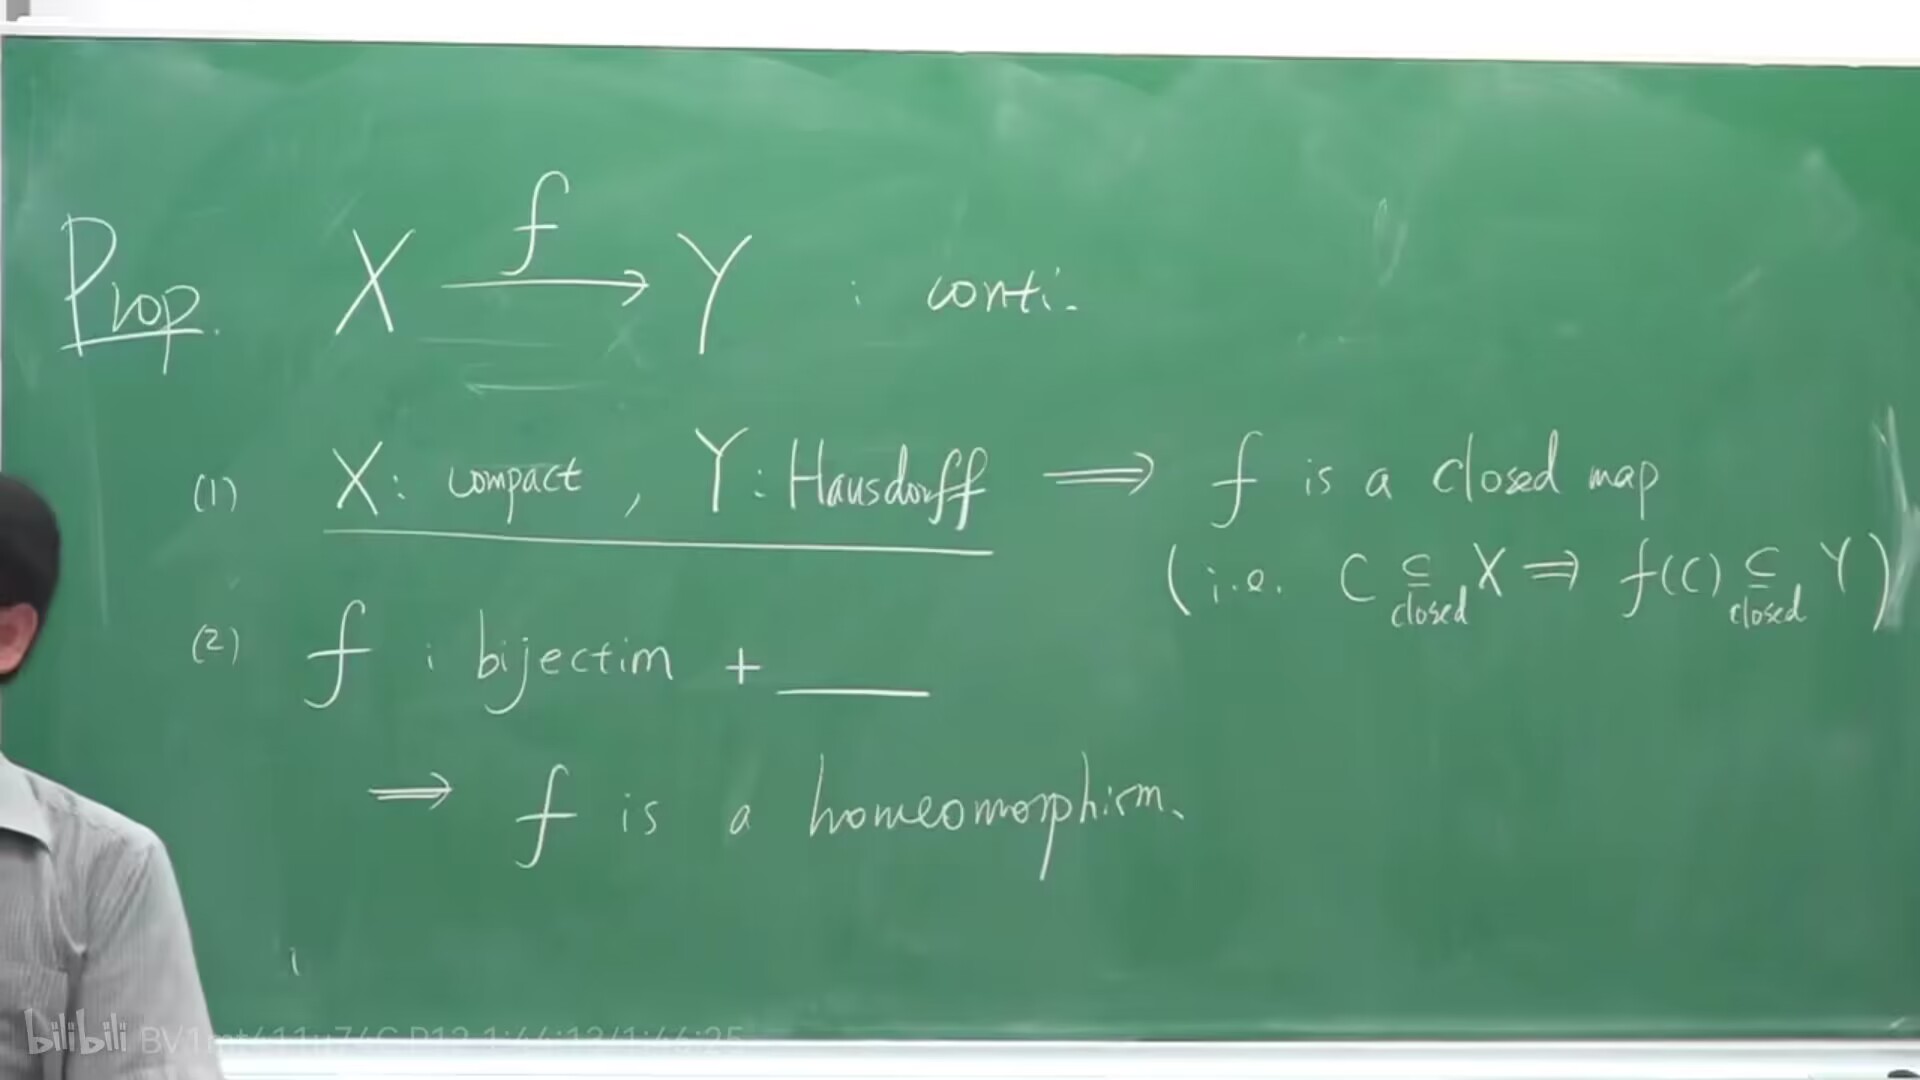 Prop. X f → Y : conti.
(1) X: compact, Y: Hausdorff ⟹ f is a closed map
(i.e. C ⊆ closed X ⟹ f(C) ⊆ closed Y)
(2) f : bijection + ___
⟹ f is a homeomorphism.
bilibili